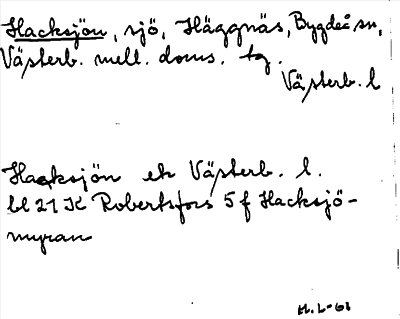 Hacksjön, sjö, Häggnäs, Bygdeå sn,
Västerb. mell. doms. tg.
Västerb. l
Hacksjön ek Västerb. l.
bl 21 K Robertsfors 5 f Hacksjö-
myran
H. L-61